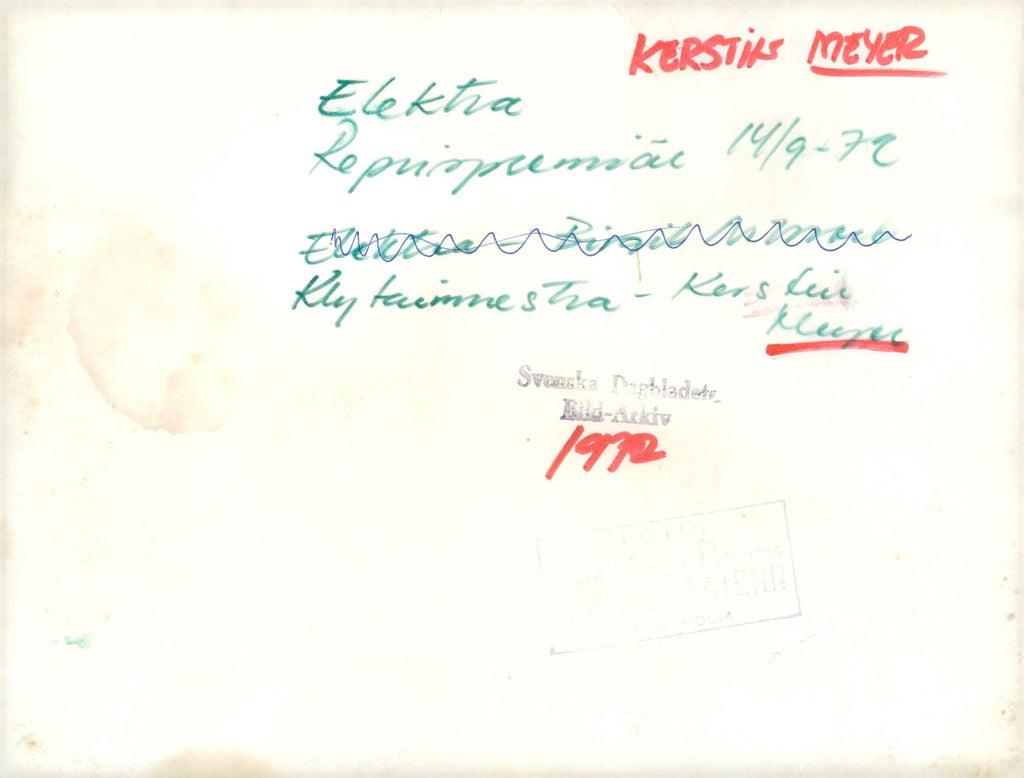 KERSTIN MEYER
Elektra
Reprispremiär 14/9-72
Elektra - Birgit
Klytaimnestra - Kerstin
Meyer
Svenska Dagbladets
Bild-Arkiv
1972
FOTO:
STOCKHOLM